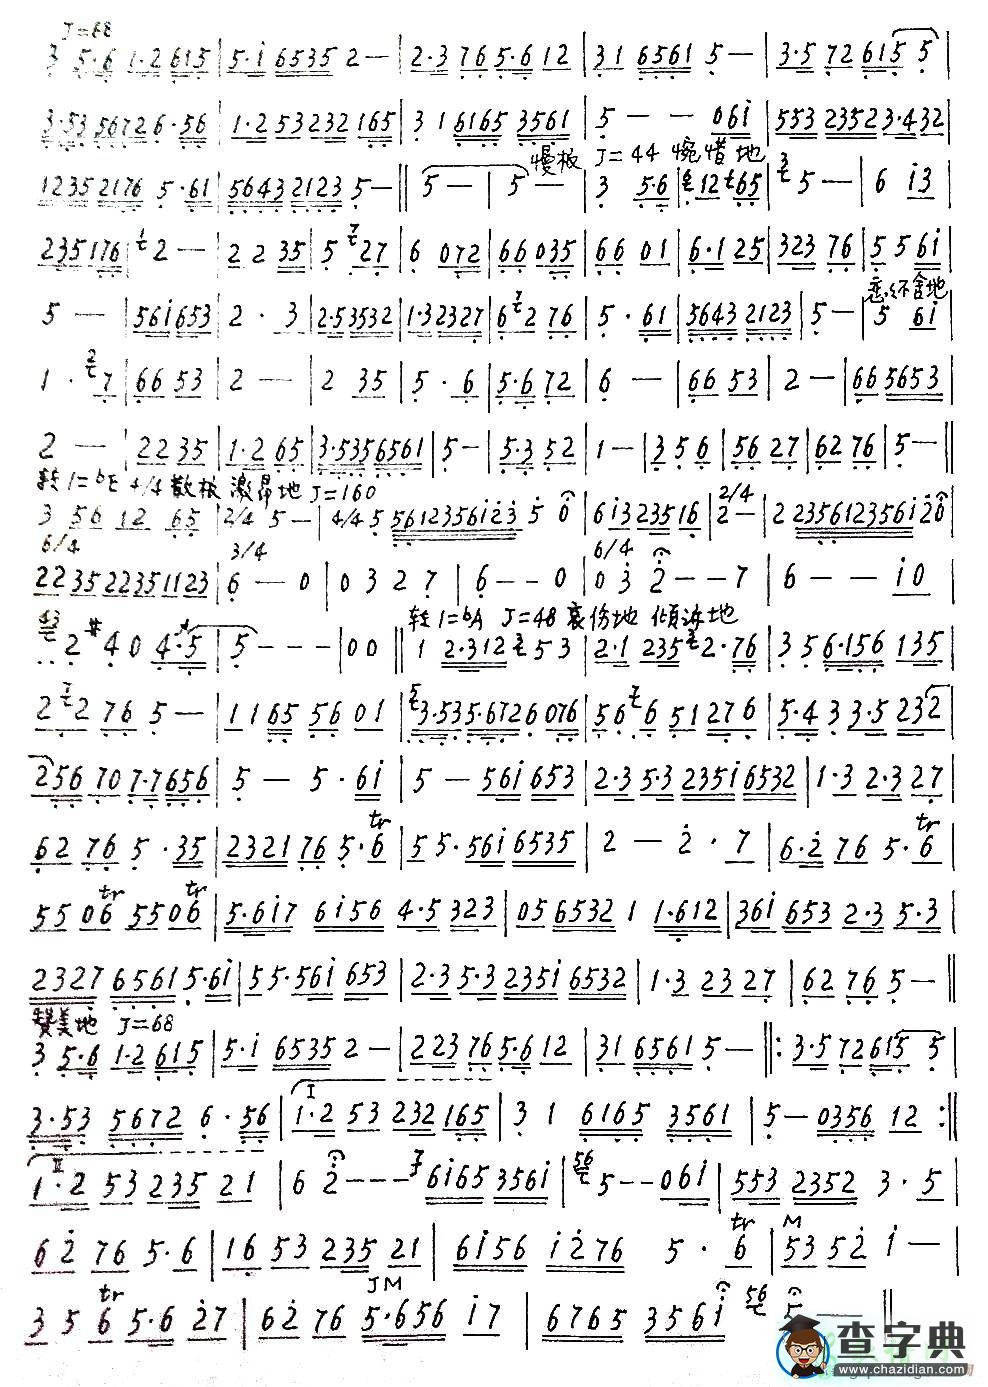 J=68
3 5·6 1·2 615 | 5·i 6535 2— | 2·3 76 5·6 12 | 31 6561 5— | 3·5 72 615 5 |
3·53 5672 6·56 | 1·2 53 232 165 | 3 1 6165 3561 | 5 — — 06i | 553 2352 3·432
慢板 J=44 惋惜地
1235 2176 5·61 | 5643 2123 5— || 5— | 5— | 3 5·6 | 12 65 | 5— | 6 i3
235 176 | 2— | 2 2 35 | 5 27 | 6 072 | 66 035 | 66 01 | 6·1 25 | 323 76 | 5 5 6i |
恋恋不舍地
5 — | 56i653 | 2 · 3 | 2·53532 | 1·32327 | 6 2 76 | 5·61 | 5643 2123 | 5— | 5 6i
1 · 7 | 66 53 | 2 — | 2 35 | 5·6 | 5·6 72 | 6 — | 66 53 | 2— | 66 5653
2 — | 22 35 | 1·2 65 | 3·5356561 | 5— | 5·3 52 | 1— | 3 5 6 | 56 27 | 62 76 | 5— ||
转1=bE 4/4 散板 激昂地 J=160
3 56 12 65 | 2/4 5— | 4/4 5 56123561i23 5 0 | 6i323516 | 2/4 2— | 2 2356123561i20 |
6/4 3/4 6/4
223522351123 | 6—0 | 0 3 2 7 | 6——0 | 0 3 2——7 | 6——i0 |
转1=bA J=48 哀伤地 倾诉地
2 #4 0 4·5 | 5—— | 00 || 1 2·312 5 3 | 2·1 235 2·76 | 3 5 6·156 135 |
2 2 76 5— | 1 1 65 56 01 | 3·535·6726 076 | 56 6 51 276 | 5·4 3 3·5 232 |
256 70 7·7656 | 5 — 5·6i | 5 — 56i 653 | 2·3 5·3 235i 6532 | 1·3 2·3 27 |
62 76 5·35 | 2321 76 5·6 tr | 5 5·56i 6535 | 2 — 2·7 | 6·2 76 5·6 tr |
55 06 tr 55 06 tr | 5·6i7 6i56 4·5 323 | 05 6532 1 1·612 | 36i 653 2·3 5·3 |
2327 6561 5·6i | 55·56i 653 | 2·3 5·3 235i 6532 | 1·3 23 27 | 62 76 5— ||
赞美地 J=68
3 5·6 1·2 615 | 5·i 6535 2— | 223 76 5·6 12 | 31 6561 5— ||: 3·5 72 615 5 |
3·53 5672 6·56 | I 1·2 53 232 165 | 3 1 6165 3561 | 5— 0356 12 :||
II 1·2 53 235 21 | 6 2——— 6i65 356i | 56 5——06i | 553 2352 3·5 |
62 76 5·6 | 16 53 235 21 | 6i56 i276 5·6 tr | M 53 52 i— |
3 5 6 tr 5·6 27 | 62 76 JM 5·656 i7 | 6765 356i 56 5 ||
查字典
www.chazidian.com